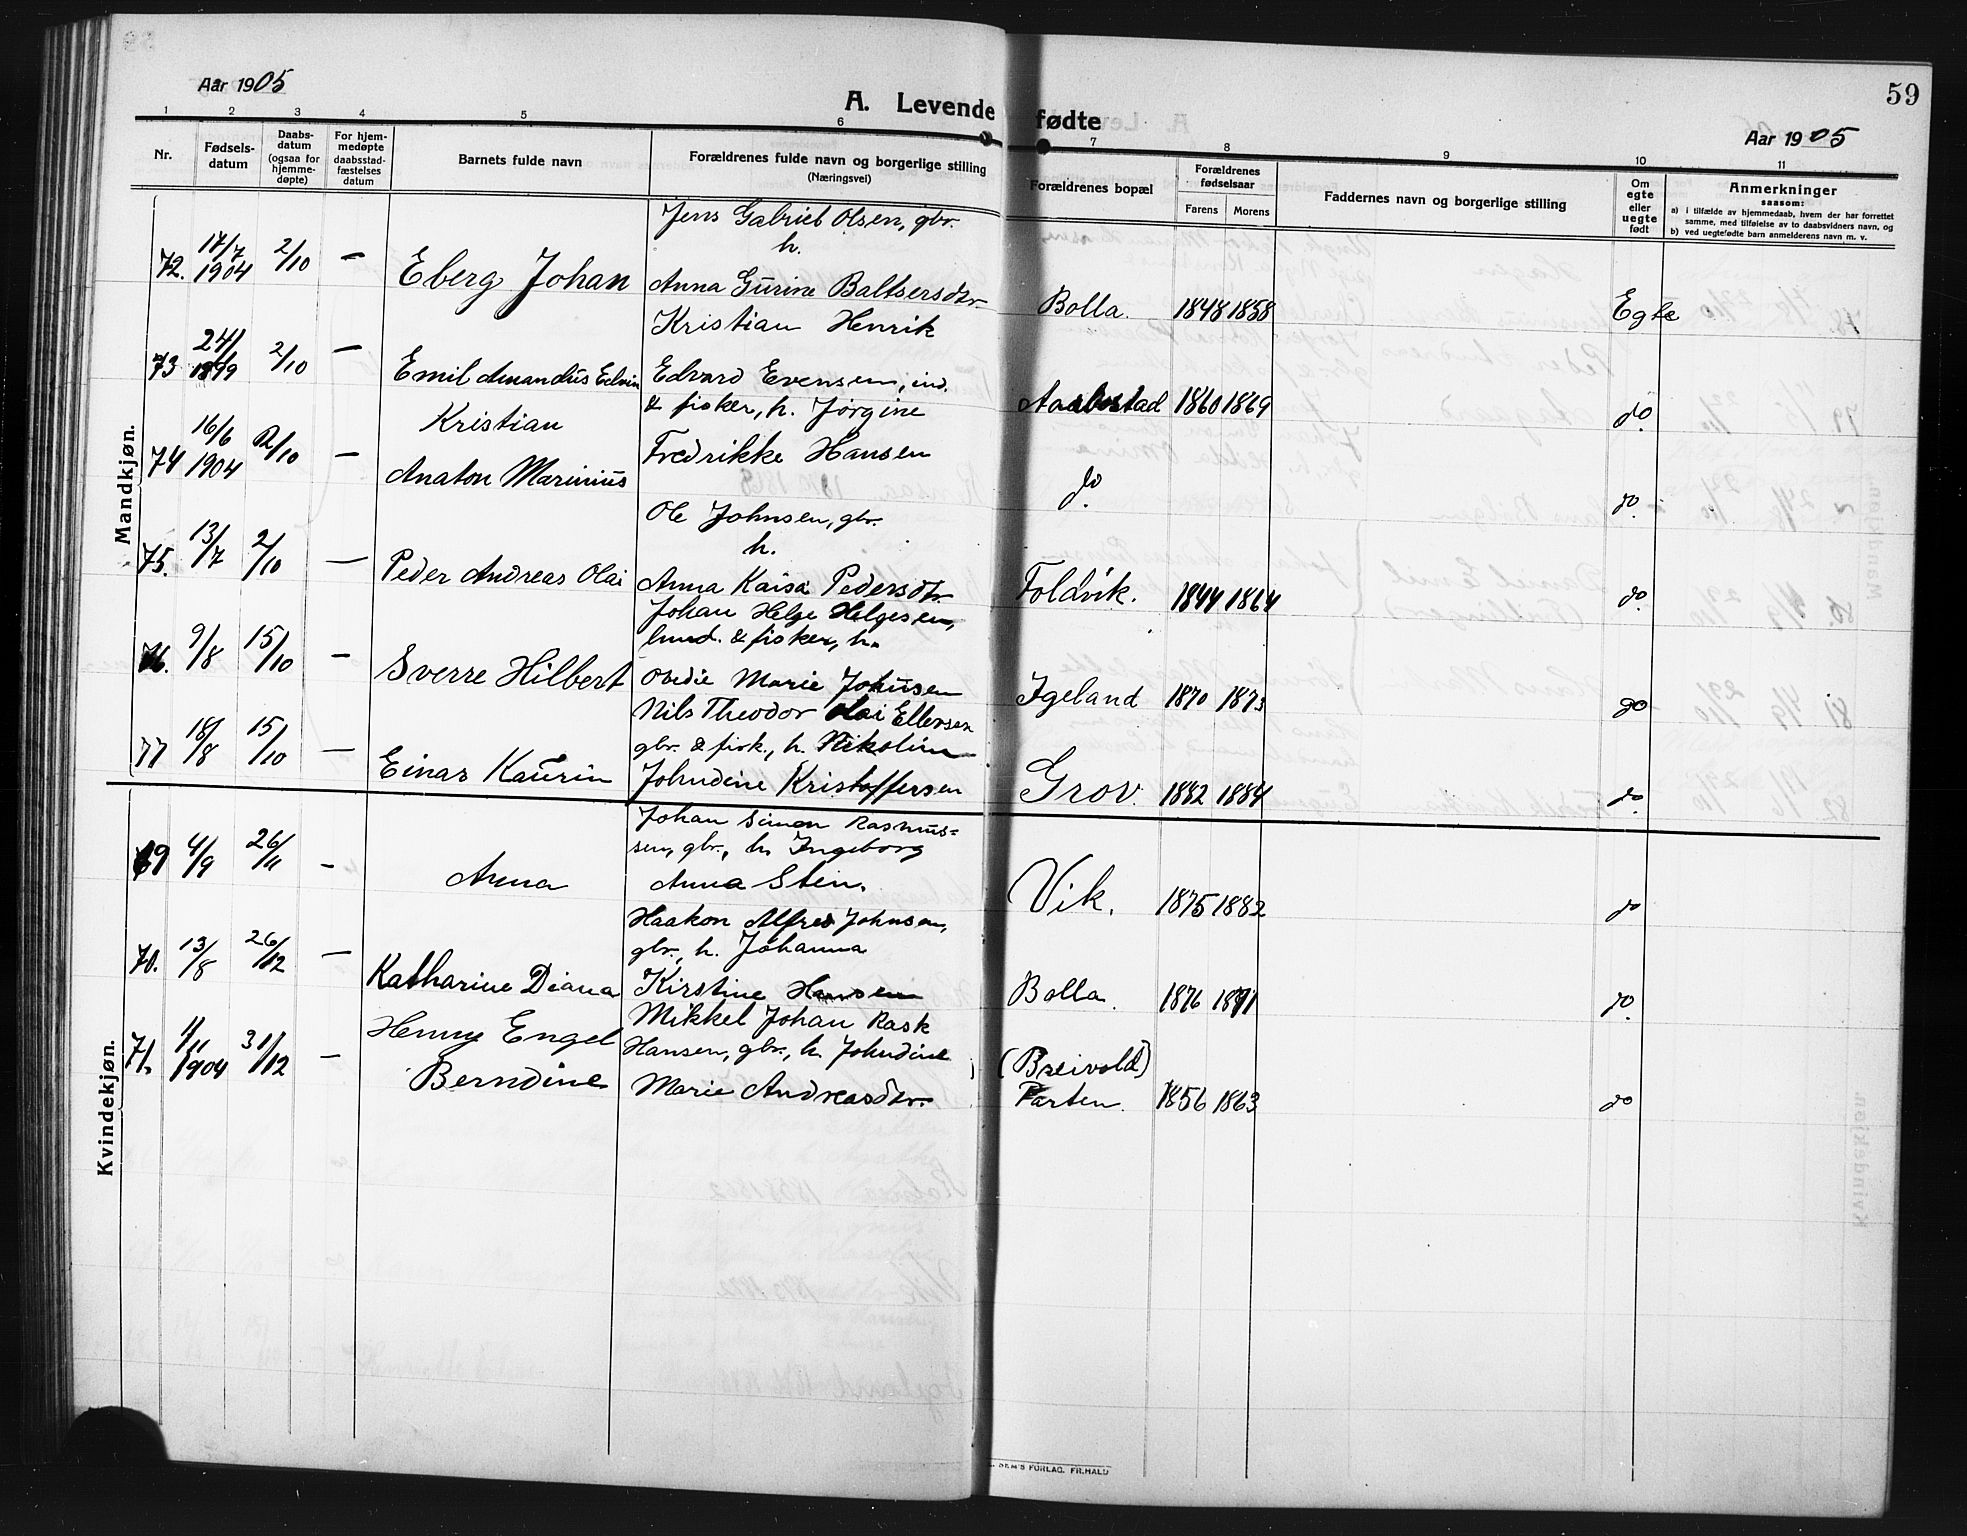 59
Aar 1905
A. Levende fødte
Aar 1905
1 2 3 4 5 6 7 8 9 10 11
Nr.
Fødsels-
datum
Daabs-
datum
(ogsaa for
hjemme-
døpte)
For hjem-
medøpte
daabsstad-
fæstelses
datum
Barnets fulde navn
Forældrenes fulde navn og borgerlige stilling
(Næringsvei)
Forældrenes bopæl
Forældrenes
fødselsaar
Farens Morens
Faddernes navn og borgerlige stilling
Om
egte
eller
uegte
født
Anmerkninger
saasom:
a) i tilfælde av hjemmedaab, hvem der har forrettet
samme, med tilføielse av to daabsvidners navn, og
b) ved uegtefødte barn anmelderens navn m. v.
Mandkjøn.
72. 17/7 1904 2/10 — Eberg Johan
Jens Gabriel Olsen, gbr.
h.
Anna Gurine Baltsersdtr
Bolla. 1848 1858 Egte
73 24/1 1899 2/10 — Emil Amandus Edvin
Kristian
Kristian Henrik
Edvard Evensen, ind.
& fisker, h. Jørgine
Fredrikke Hansen
Aarbostad 1860 1869 do.
74 16/6 1904 2/10 — Anaton Marinius
do. do.
75. 13/7 2/10 — Peder Andreas Olai
Ole Johnsen, gbr.
h.
Anna Kaisa Pedersdtr.
Foldvik. 1844 1864 do.
76. 9/8 15/10 — Sverre Hilbert
Johan Helge Helgesen,
& fisker, h.
Ovedie Marie Johnsen
Igeland 1870 1873 do
77 18/8 15/10 — Einar Kaurin
Nils Theodor Olai Ellersen
gbr. & fisk., h. Nikoline
Johndine Kristoffersen
Grov. 1882 1884 do.
Kvindekjøn.
69 4/9 26/11 — Anna
Johan Simon Rasmus=
sen, gbr., h. Ingeborg
Anna Stein.
Vik. 1875 1882 do
70. 13/8 26/12 — Katharine Diana
Haakon Alfred Johnsen,
gbr., h. Johanna
Kirstine Hansen
Bolla. 1876 1871 do.
71. 1/11 1904 31/12 — Henny Engel
Berndine
Mikkel Johan Rask
Hansen, gbr., h. Johndine
Marie Andreasdtr.
(Breivold)
Parten. 1856 1863 do
SEM'S FORLAG. FR.HALD